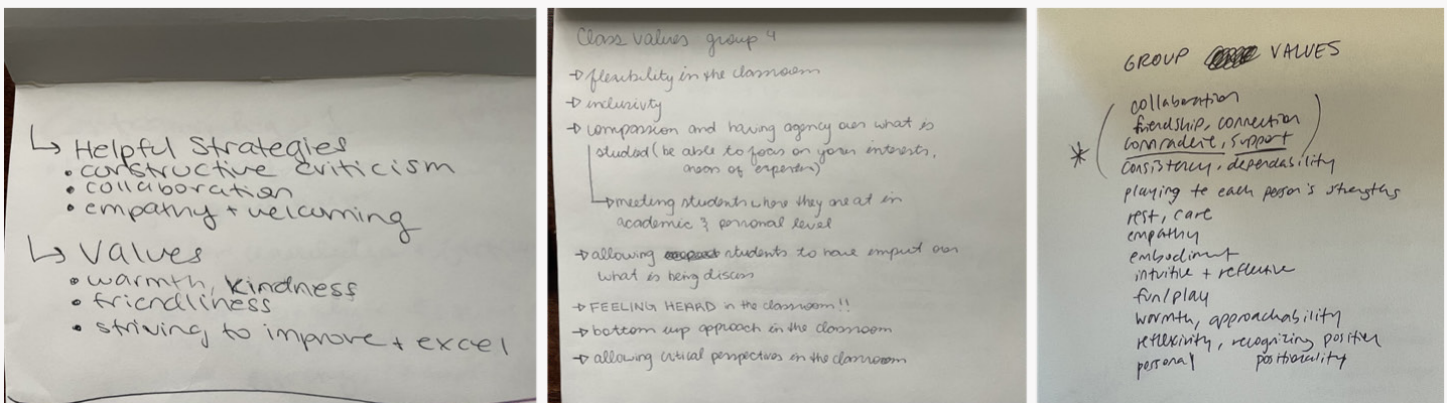 ↳ Helpful Strategies
• constructive criticism
• collaboration
• empathy + welcoming
↳ Values
• warmth, kindness
• friendliness
• striving to improve + excel
Class values group 4
→ flexibility in the classroom
→ inclusivty
→ compassion and having agency over what is
studied (be able to focus on your interests,
areas of
→ meeting students where they are at in
academic & personal level
→ allowing students to have over
what is being discuss
→ FEELING HEARD in the classroom!!
→ bottom up approach in the classroom
→ allowing critical perspectives in the classroom
GROUP VALUES
collaboration
friendship, connection
* support
consistency, dependability
playing to each person's strengths
rest, care
empathy
embodiment
intuitive + reflective
fun/play
warmth, approachability
reflexivity, recognizing
personal positionality